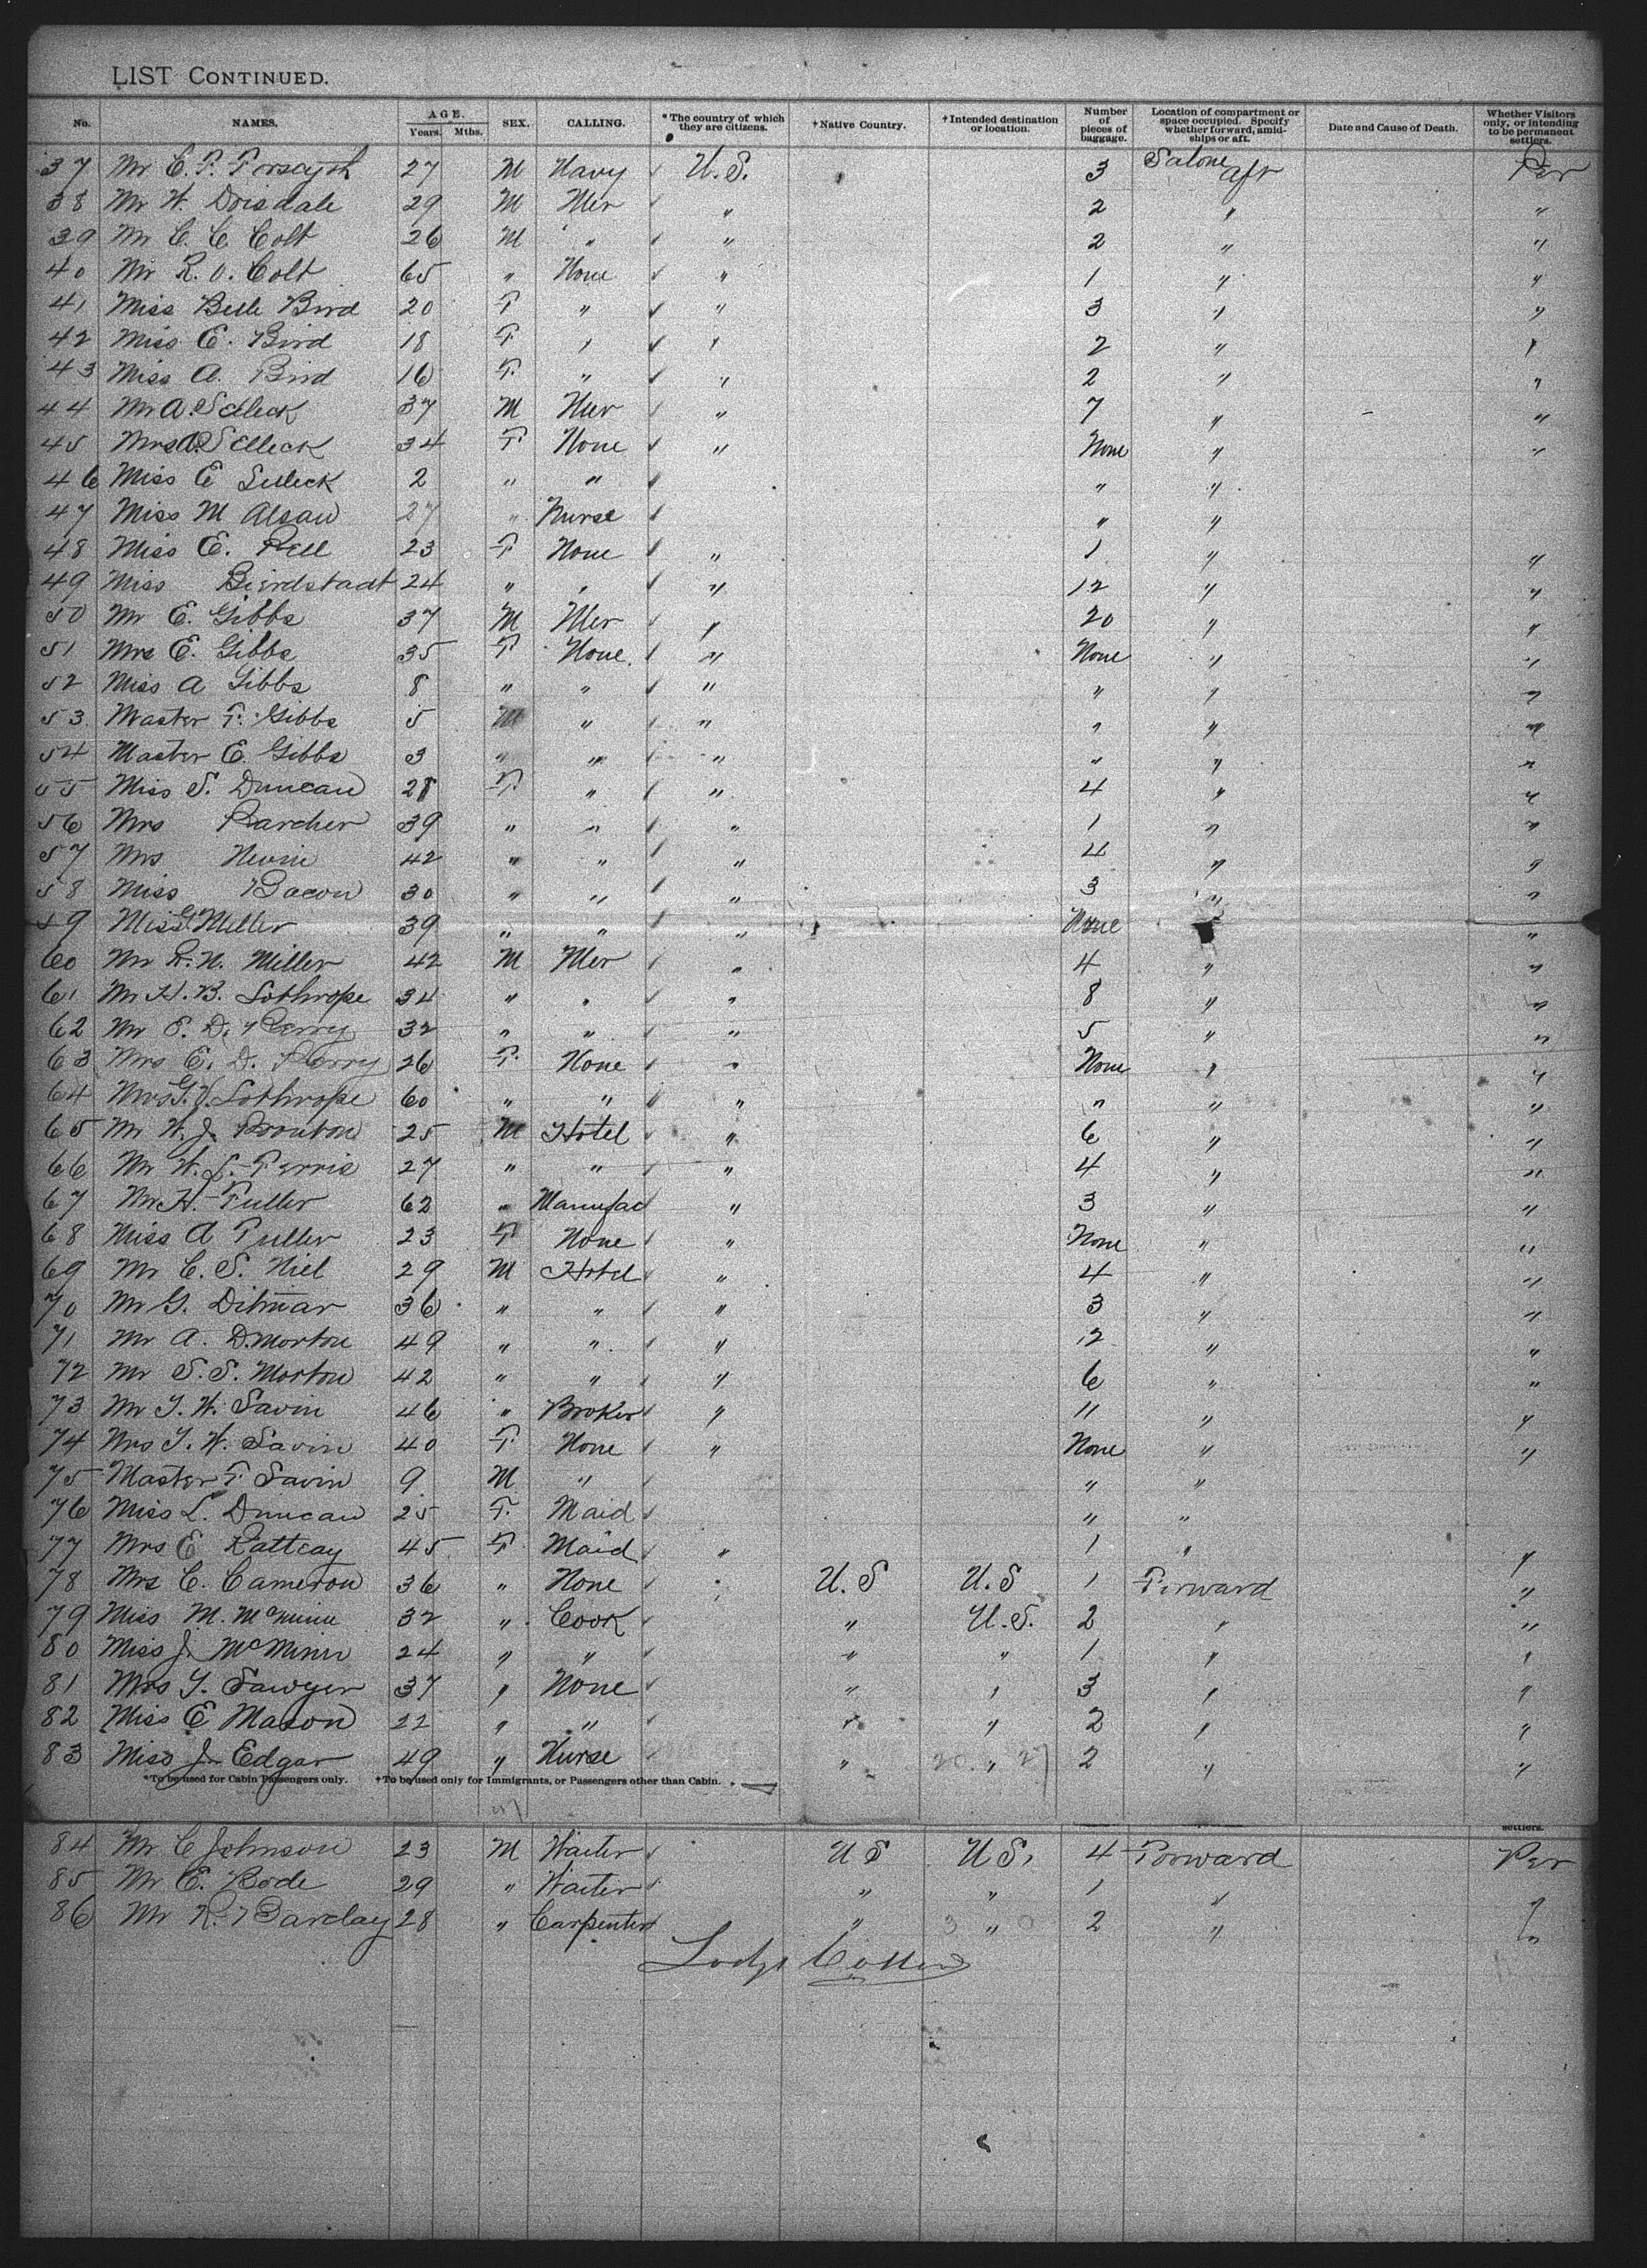 LIST CONTINUED.
No. NAMES. AGE. Years. Mths. SEX. CALLING. *The country of which they are citizens. †Native Country. †Intended destination or location. Number of pieces of baggage. Location of compartment or space occupied. Specify whether forward, amid-ships or aft. Date and Cause of Death. Whether Visitors only, or intending to be permanent settlers.
37 Mr C. F. Forsayth 27 M Navy U.S. 3 Salone aft Per
38 Mr W. Drisdale 29 M Mer " 2 " "
39 Mr C. C. Colt 26 M " " 2 " "
40 Mr R. O. Colt 65 " None " 1 " "
41 Miss Belle Bird 20 F " " 3 " "
42 Miss E. Bird 18 F " " 2 " "
43 Miss A. Bird 16 F " " 2 " "
44 Mr A. Selleck 37 M Mer " 7 " "
45 Mrs A. Selleck 34 F None " None " "
46 Miss E Selleck 2 " " " "
47 Miss M 27 " Nurse " "
48 Miss E. Pell 23 F None " 1 " "
49 Miss Beirdstadt 24 " " " 12 " "
50 Mr E. Gibbs 37 M Mer " 20 " "
51 Mrs E. Gibbs 35 F None " None " "
52 Miss A Gibbs 8 " " " " " "
53 Master F. Gibbs 5 M " " " " "
54 Master E. Gibbs 3 " " " " " "
55 Miss S. Duncan 28 F " " 4 " "
56 Mrs Karcher 39 " " " 1 " "
57 Mrs Nevin 42 " " " 4 " "
58 Miss Bacon 30 " " " 3 " "
59 Miss G. Miller 39 " " " None "
60 Mr R. N. Miller 42 M Mer " 4 " "
61 Mr H. B. Lothrope 34 " " " 8 " "
62 Mr E. D. Perry 32 " " " 5 " "
63 Mrs E. D. Perry 26 F None " None " "
64 Mrs G. V. Lothrope 60 " " " " " "
65 Mr W. J. 25 M Hotel " 6 " "
66 Mr W. L. Ferris 27 " " " 4 " "
67 Mr H. Fuller 62 " Manufac " 3 " "
68 Miss A Fuller 23 F None " None " "
69 Mr C. S. Niel 29 M Hotel " 4 " "
70 Mr G. Ditmar 36 " " " 3 " "
71 Mr A. D. Morton 49 " " " 12 " "
72 Mr S. S. Morton 42 " " " 6 " "
73 Mr F. W. Savin 46 " Broker " 11 " "
74 Mrs F. W. Savin 40 F None " None " "
75 Master F. Savin 9 M " " "
76 Miss L. Duncan 25 F. Maid " "
77 Mrs E Rattray 45 F Maid " 1 " "
78 Mrs C. Cameron 36 " None " U.S U.S 1 Forward "
79 Miss M. McMinn 32 " Cook " U.S. 2 " "
80 Miss J. McMinn 24 " " " " 1 " "
81 Mrs Y. Sawyer 37 " None " " 3 " "
82 Miss E Mason 22 " " " " 2 " "
83 Miss J. Edgar 49 " Nurse " 20 " 27 2 " "
*To be used for Cabin Passengers only. †To be used only for Immigrants, or Passengers other than Cabin.
settlers.
84 Mr C Johnson 23 M Waiter U S U S, 4 Forward Per
85 Mr E. Bode 29 " Waiter " " 1 " "
86 Mr R. Barclay 28 " Carpenter " 3 " 0 2 " "